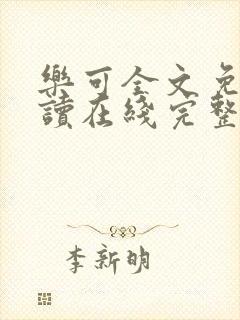 樂可全文免
讀在綫完整
李新明